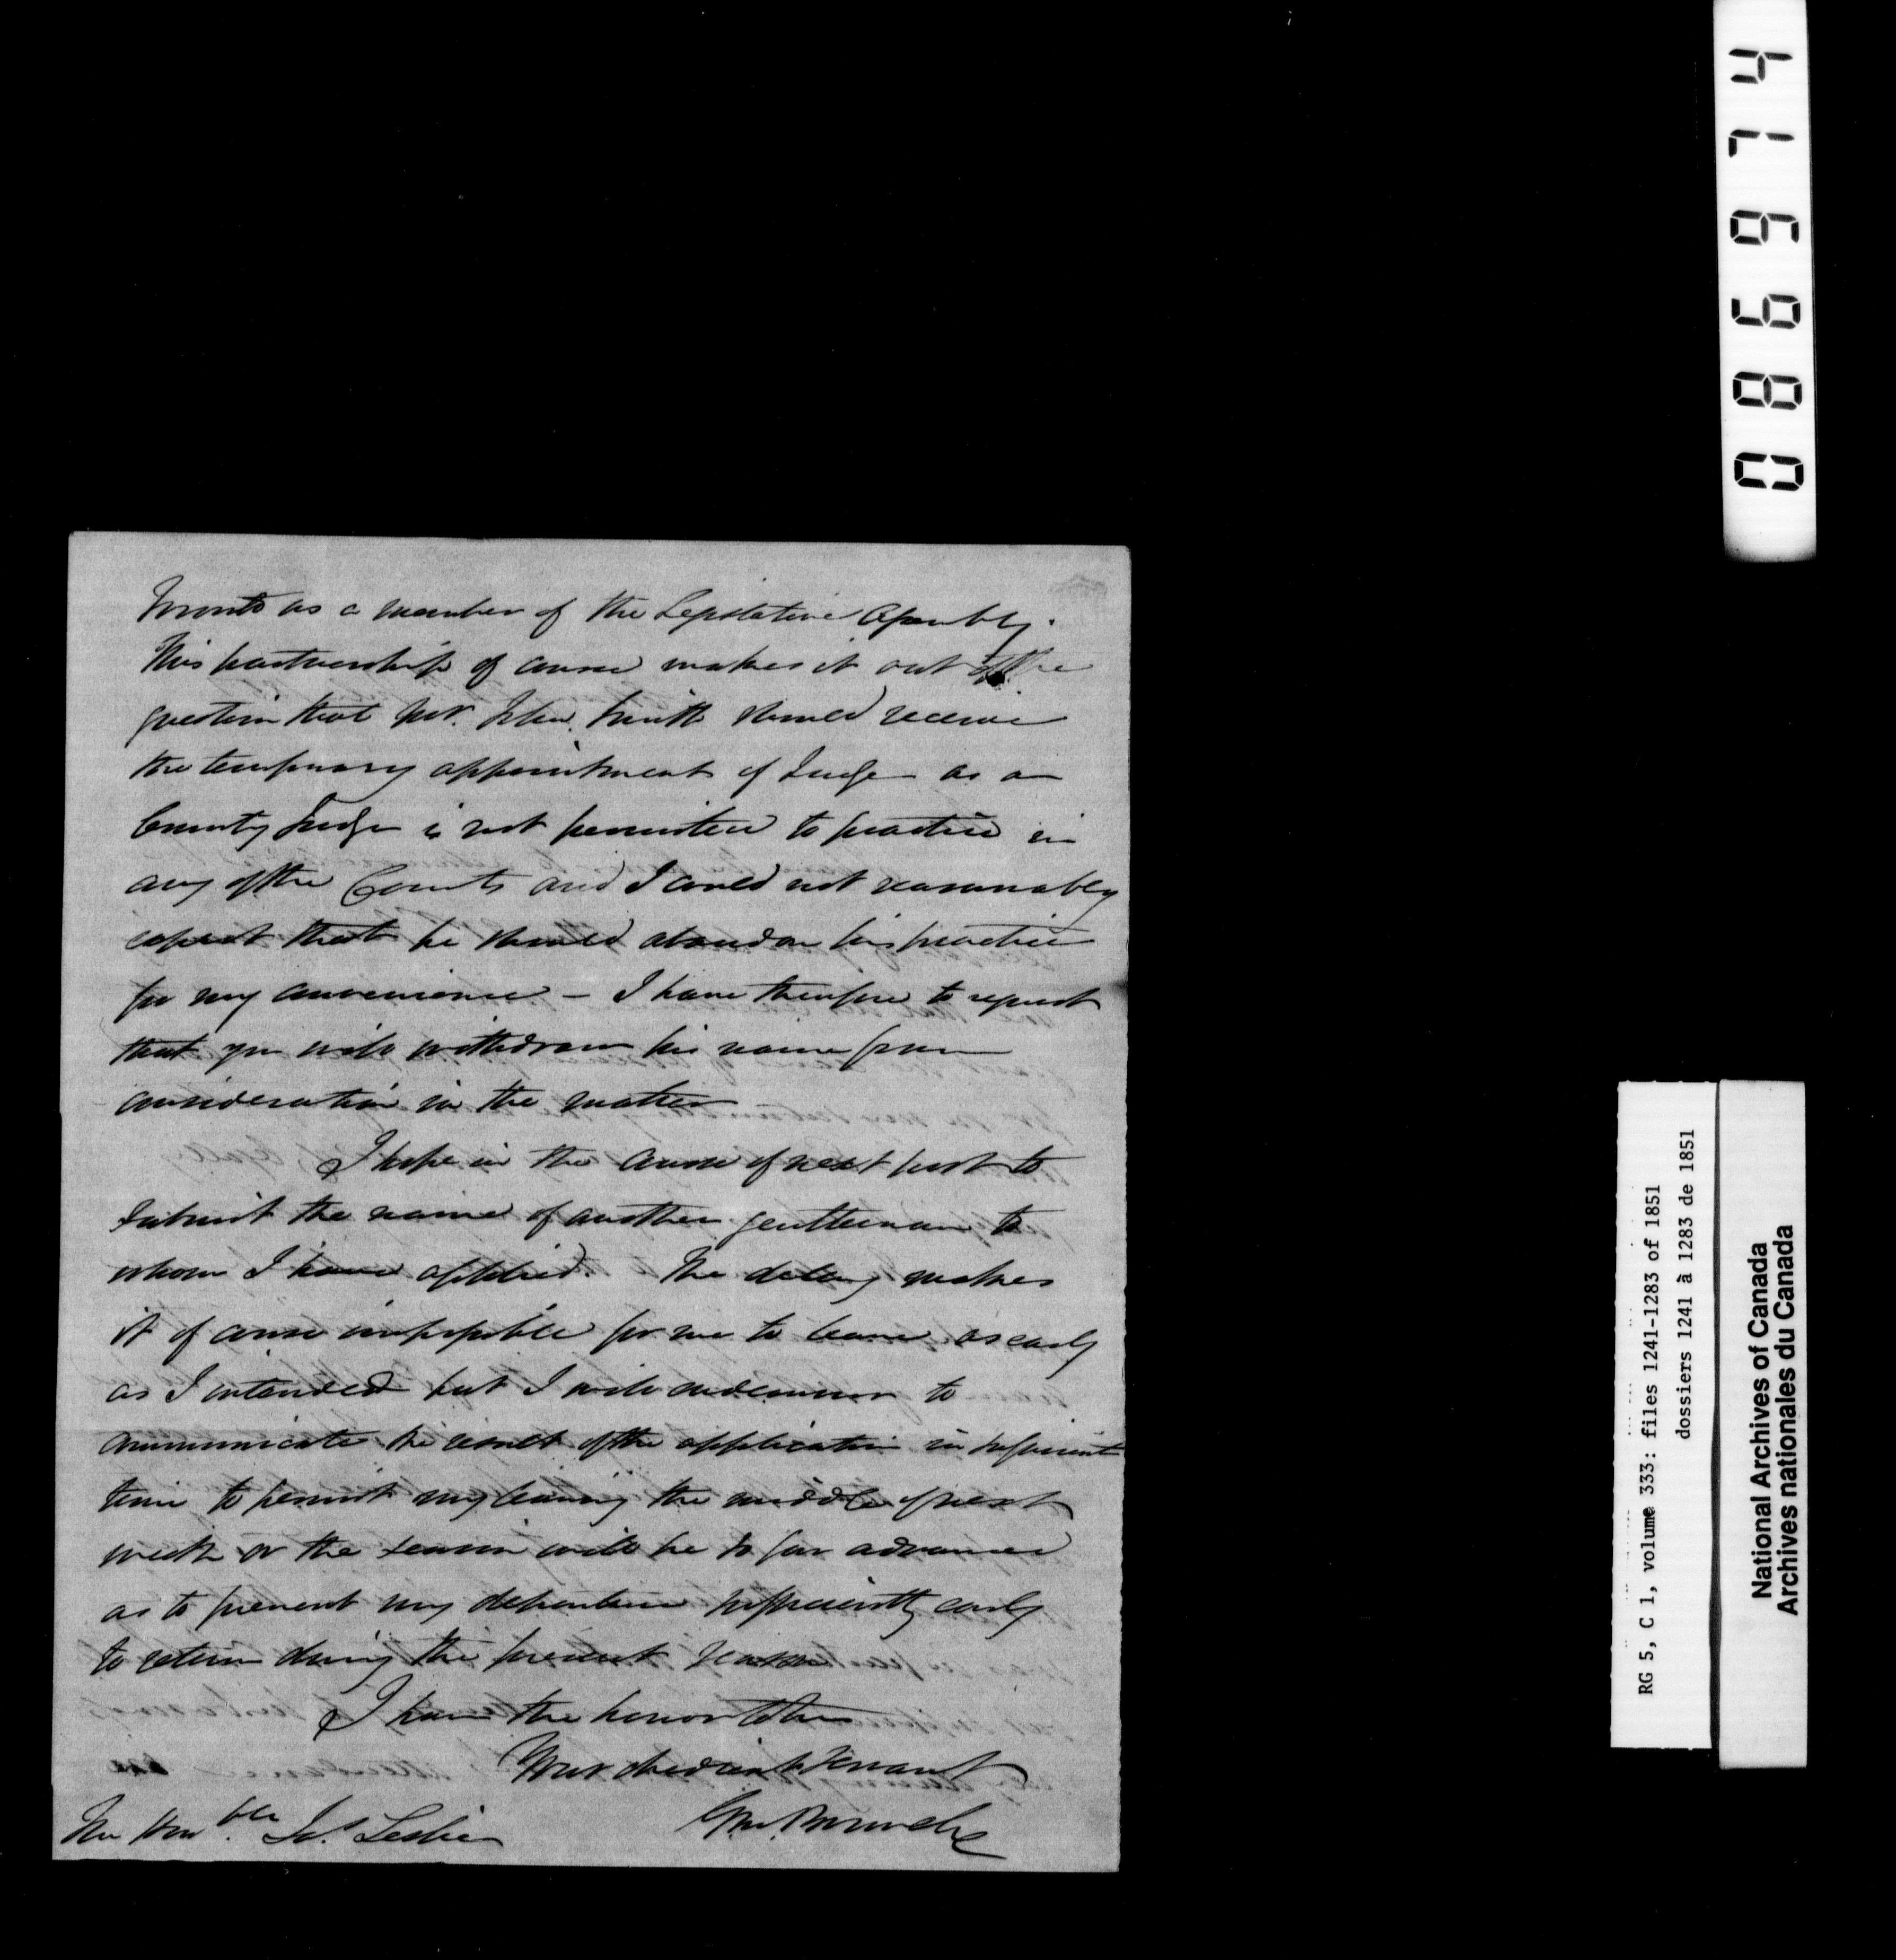 Toronto as a member of the Legislative Assembly.
This partnership of course makes it out of the
question that Mr. John Smith should receive
the temporary appointment of Judge as a
County Judge is not permitted to practice in
any of the Courts and I could not reasonably
expect that he should abandon his practice
for my convenience – I have therefore to request
that you will withdraw his name from
consideration in the matter
I hope in the course of next post to
submit the name of another gentleman to
whom I have applied. The delay makes
it of course impossible for me to leave as early
as I intended but I will endeavour to
communicate the result of the application in sufficient
time to permit my leaving the middle of next
week or the season will be so far advanced
as to prevent my departure sufficiently early
to return during the present season
I have the honor to be
Your obedient Servant
The Honble. Js. Leslie
0 8 6 9 7 4
RG 5, C 1, volume 333: files 1241-1283 of 1851
dossiers 1241 à 1283 de 1851
National Archives of Canada
Archives nationales du Canada